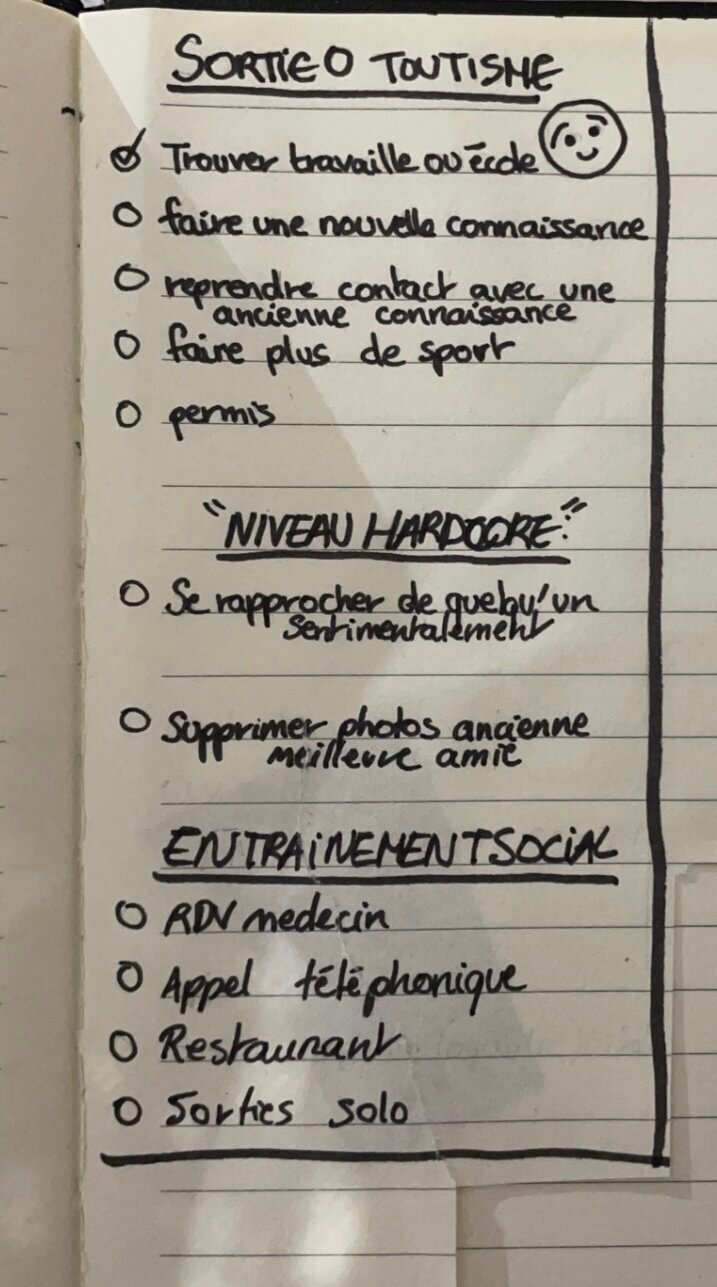 SORTIE O TOUTISME
Trouver travaille ou école
faire une nouvelle connaissance
reprendre contact avec une
ancienne connaissance
faire plus de sport
permis
"NIVEAU HARDCORE:"
Se rapprocher de quelqu'un
sentimentalement
Supprimer photos ancienne
meilleure amie
ENTRAINEMENT SOCIAL
RDV medecin
Appel téléphonique
Restaurant
Sorties solo